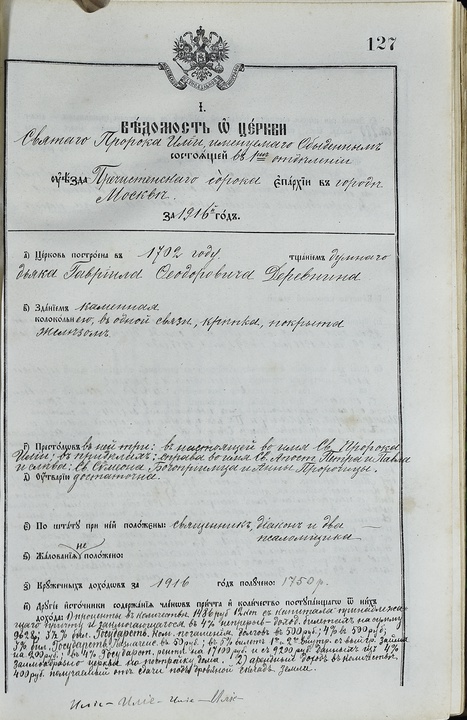 127
І.
ВѢДОМОСТЬ Ѿ ЦЕРКВИ
Святаго Пророка Иліи, именуемаго Обыденнымъ
состоящей въ 1мъ отдѣленіи
оуѣзда Пречистенскаго сорока епархіи въ городѣ
Москвѣ.
за 1916й годъ.
а) Церковь построена въ 1702 году. тщаніемъ думнаго
дьяка Гавріила Ѳеодоровича Деревнина
в) Зданіемъ каменная
колокольнею, въ одной связи, крѣпка, покрыта
желѣзомъ.
г) Престоловъ въ ней три: въ настоящей во имя Св. Пророка
Иліи; въ придѣлахъ: справа во имя Св. Апост. Петра и Павла
и слѣва: Св. Сѵмеона Богопріимца и Анны Пророчицы.
д) Оутварію достаточна.
е) По штату при ней положены: священникъ, діаконъ и два
псаломщика
ѕ) Жалованія не положено:
з) Кружечныхъ доходовъ за 1916 годъ получено: 1750 р.
и) Другіе источники содержанія членовъ причта и количество поступающаго ѿ нихъ
дохода: 1) проценты въ количествѣ 1486 руб 12 коп. съ капитала принадлежа-
щаго причту и заключающагося въ 4% непрерыв.-доход. билетахъ на сумму
Государств.
на 200 руб., въ 4% Государст. рентѣ на 17100 руб. и съ 9200 руб.
заимообразно церкви на постройку дома. 2) арендный доходъ въ количествѣ
400 руб. получаемый отъ сдачи подъ дровяной складъ земли.